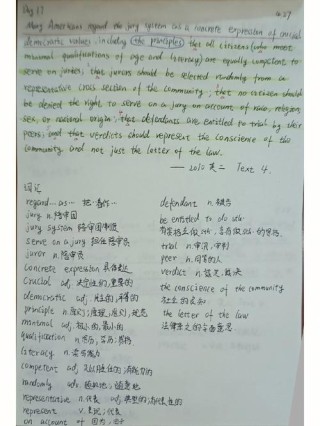 Day 17
Many Americans regard the jury system as a concrete expression of crucial
democratic values, including the principles that all citizens who meet
minimal qualifications of age and literacy are equally competent to
serve on juries; that jurors should be selected randomly from a
representative cross section of the community; that no citizen should
be denied the right to serve on a jury on account of race, religion,
sex, or national origin; that defendants are entitled to trial by their
peers; and that verdicts should represent the conscience of the
community and not just the letter of the law.
—— 2010 英二 Text 4.
词汇
regard… as… 把…看作…
jury n. 陪审团
jury system 陪审团制度
serve on a jury 担任陪审员
juror n. 陪审员
concrete expression 具体表达
crucial adj. 决定性的,重要的
democratic adj. 民主的,平等的
principle n. 原则,原理,准则,规范
minimal adj. 极小的,最小的
qualification n. 学历,资历,资格
literacy n. 读写能力
competent adj. 足以胜任的,有能力的
randomly adv. 随机地,随意地
representative n. 代表 adj. 典型的,有代表性的
represent v. 表现,代表
on account of 因为,由于
defendant n. 被告
be entitled to do sth.
有资格去做sth.,享有做sth.的资格
trial n. 审讯,审判
peer n. 同等的人
verdict n. 裁定,裁决
the conscience of the community
社会的良知
the letter of the law
法律条文的字面意思